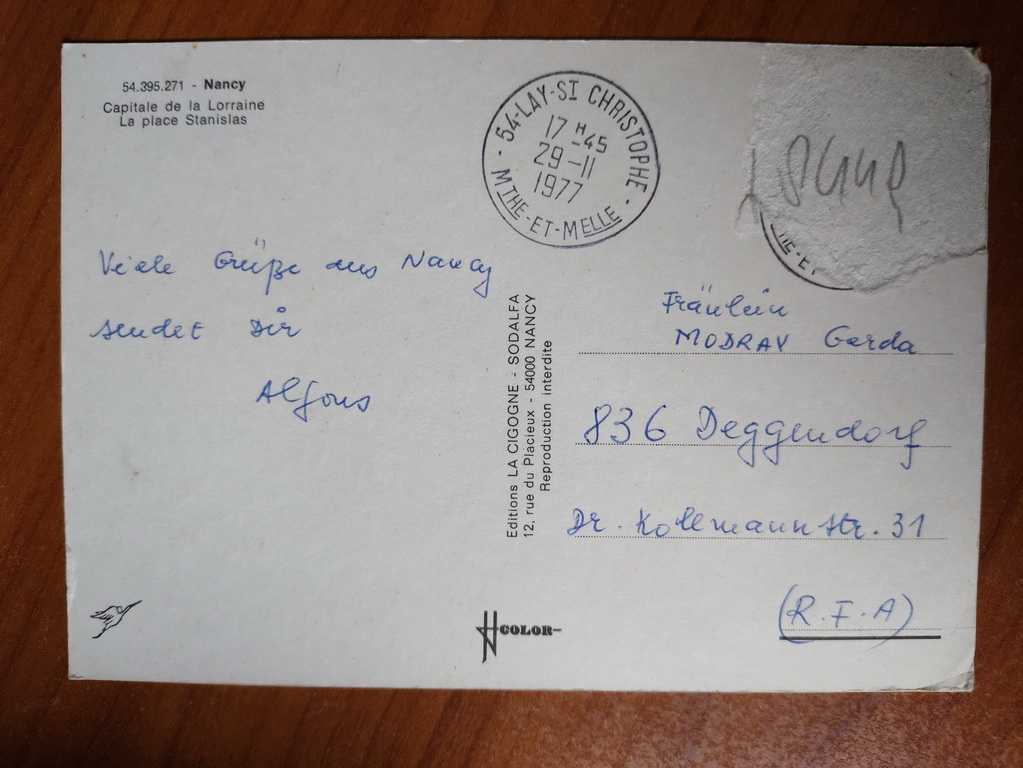 54.395.271 - Nancy
Capitale de la Lorraine
La place Stanislas
54-LAY-ST CHRISTOPHE
17 H 45
29-11
1977
MTHE-ET-MELLE
Viele Grüße aus Nancy
sendet Dir
Alfons
Editions LA CIGOGNE - SODALFA
12, rue du Placieux - 54000 NANCY
Reproduction interdite
Fräulein
MODRAV Gerda
836 Deggendorf
Dr. Kollmannstr. 31
(R.F.A)
COLOR